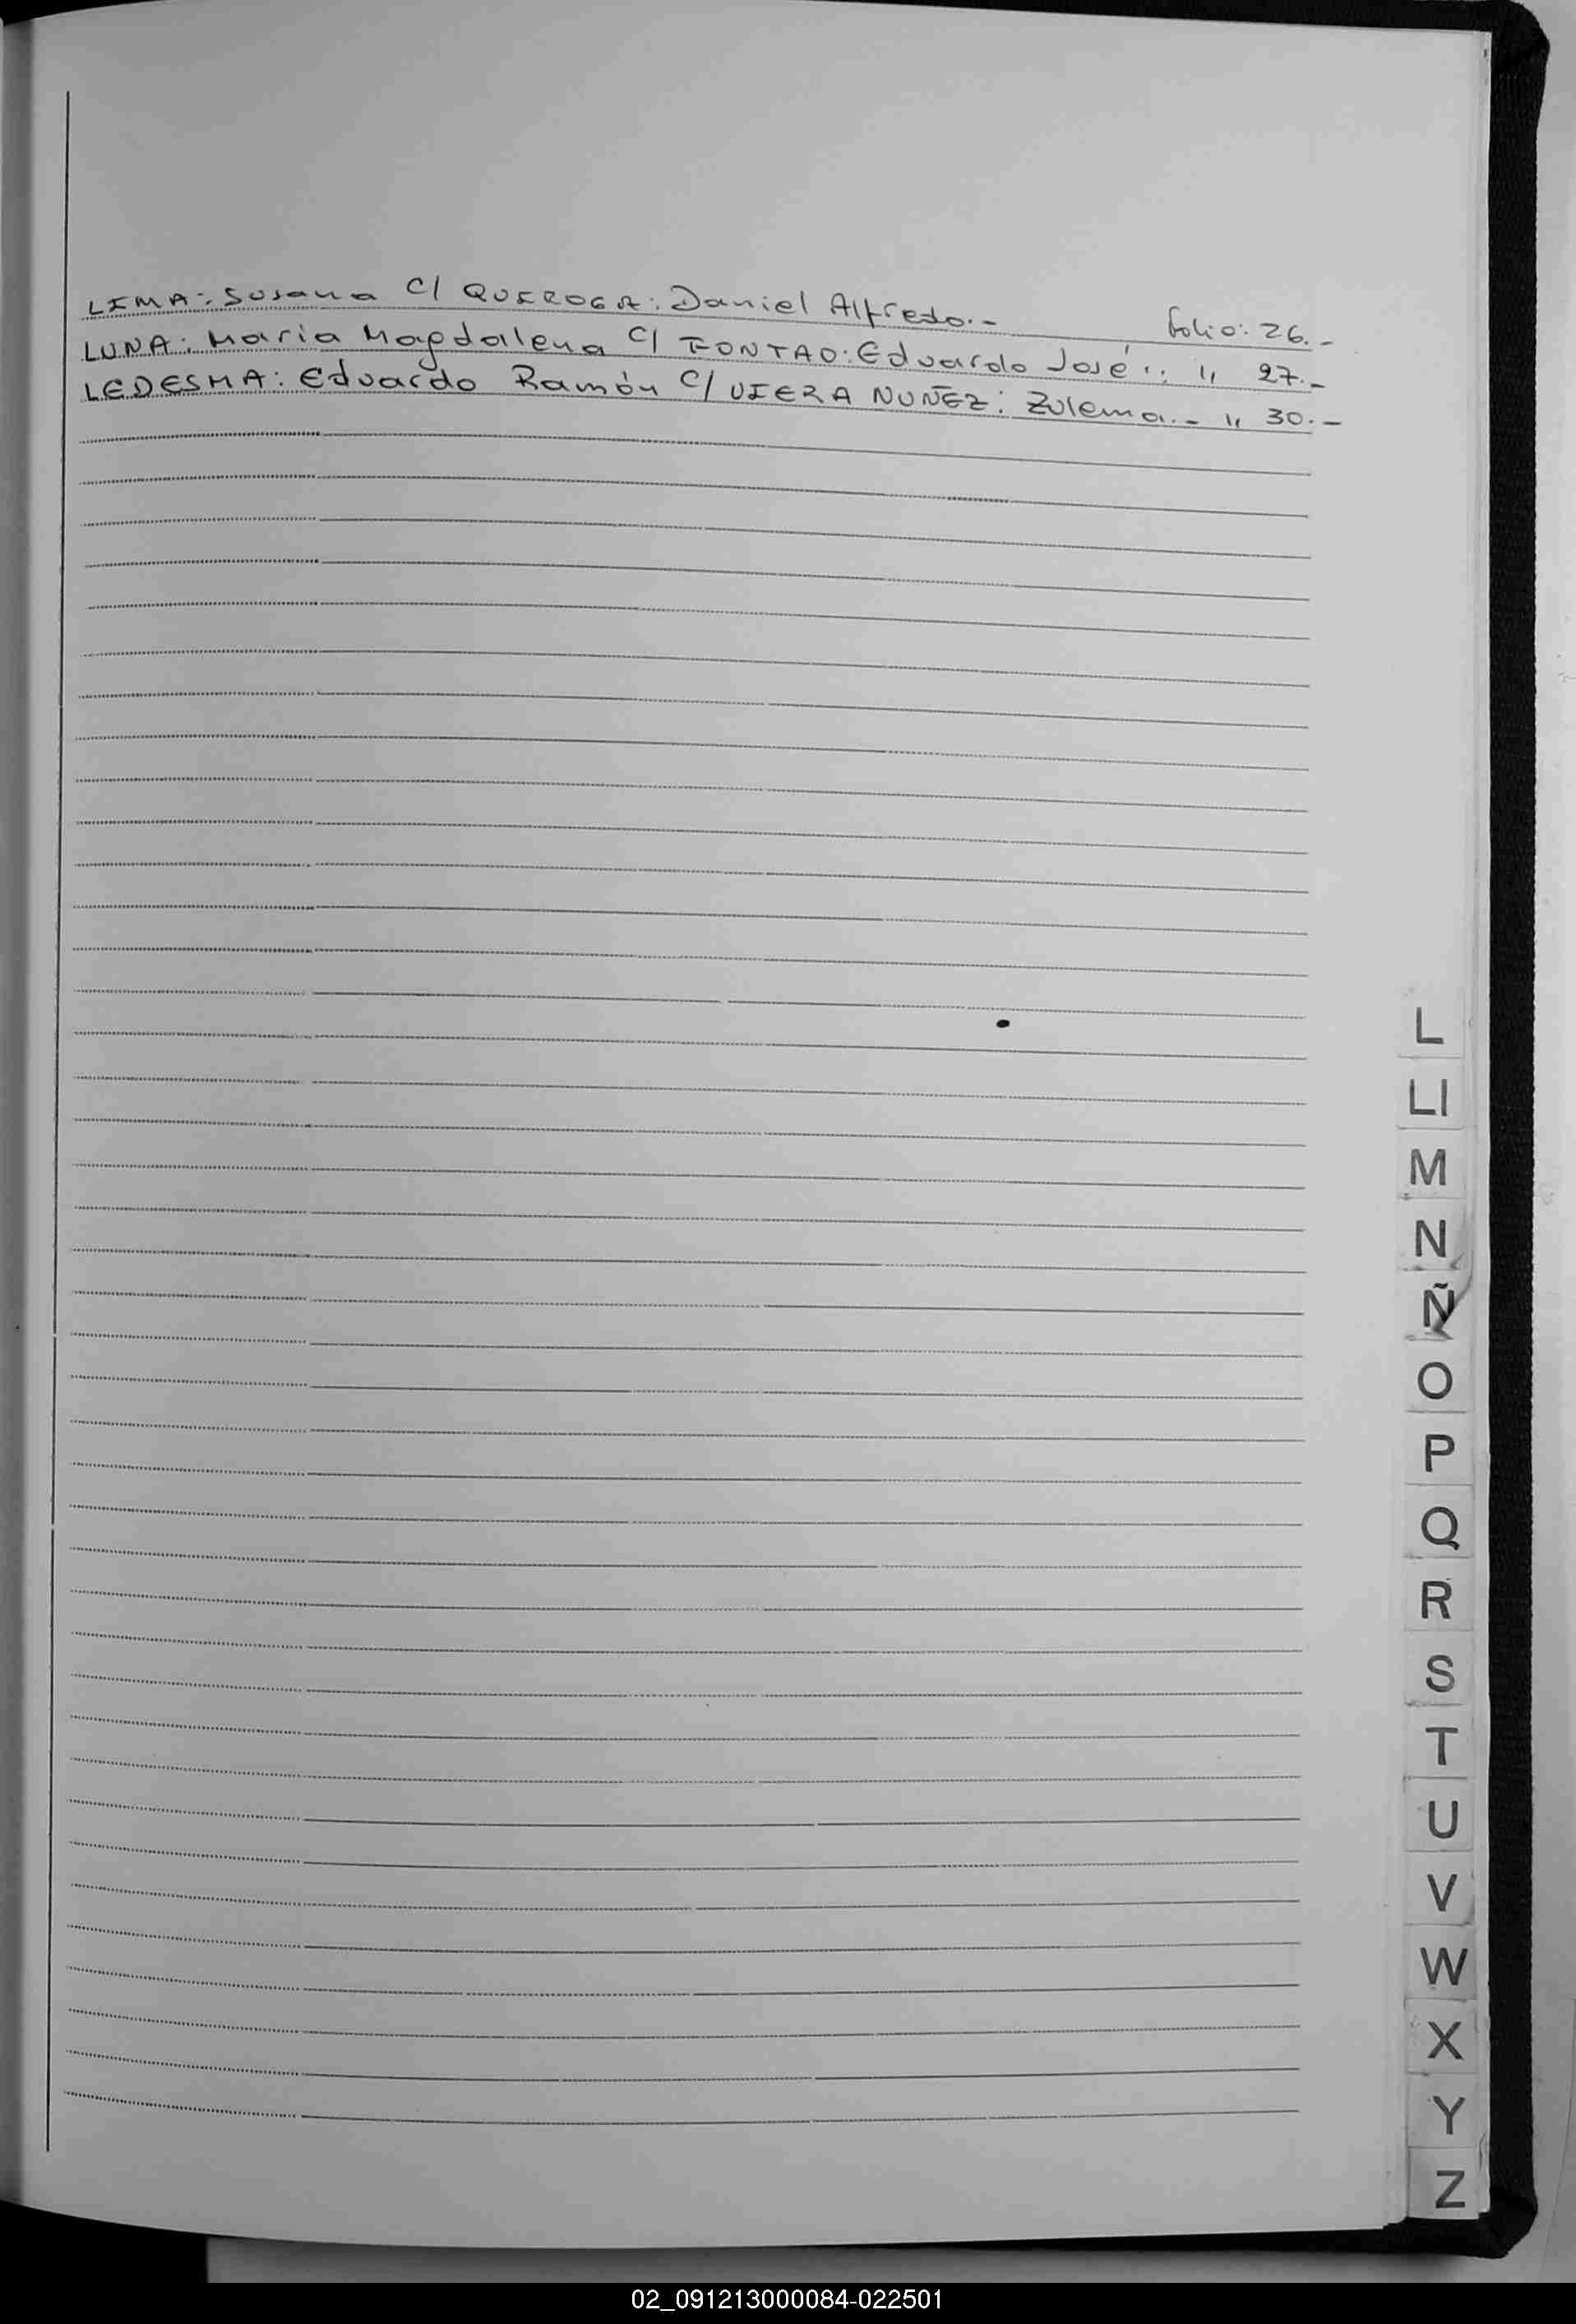 LIMA: Susana C/ QUIROGA: Daniel Alfredo.- folio: 26.-
LUNA: Maria Magdalena C/ FONTAO: Eduardo José.: " 27.-
LEDESMA: Eduardo Ramón C/ VIERA NUÑEZ: Zulema.- " 30.-
L
Ll
M
N
Ñ
O
P
Q
R
S
T
U
V
W
X
Y
Z
02_091213000084-022501